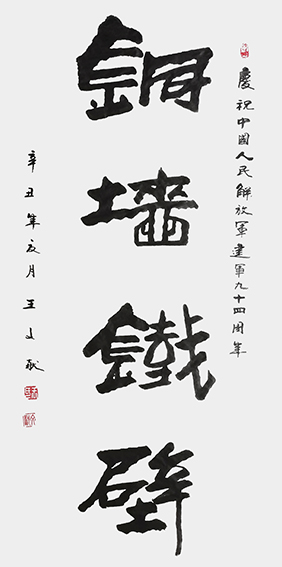 慶祝中國人民解放軍建軍九十四周年
銅墻鐵壁
辛丑年夏月王文献